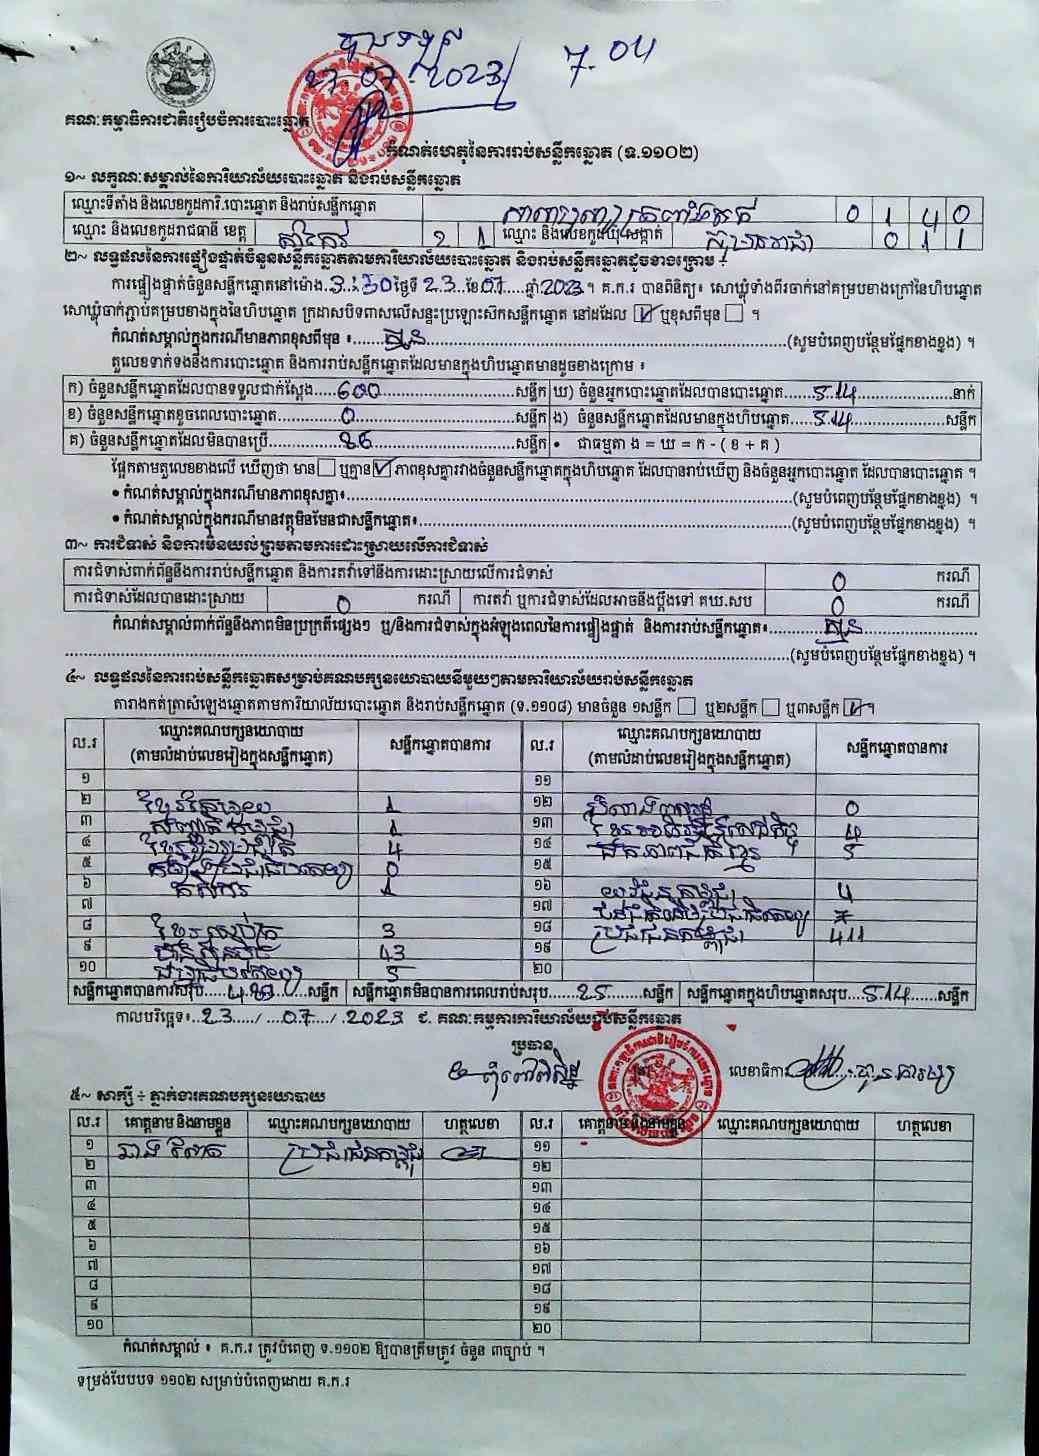 បានទទួល
27.07.2023
7.04
គណៈកម្មាធិការជាតិរៀបចំការបោះឆ្នោត
កំណត់ហេតុនៃការរាប់សន្លឹកឆ្នោត (ទ.១១០២)
១~ លក្ខណៈសម្គាល់នៃការិយាល័យបោះឆ្នោត និងរាប់សន្លឹកឆ្នោត
ឈ្មោះទីតាំង និងលេខកូដការិ.បោះឆ្នោត និងរាប់សន្លឹកឆ្នោត 0 1 4 0
ឈ្មោះ និងលេខកូដរាជធានី ខេត្ត តាកែវ 2 1 ឈ្មោះ និងលេខកូដឃុំ សង្កាត់ 0 1 1
២~ លទ្ធផលនៃការផ្ទៀងផ្ទាត់ចំនួនសន្លឹកឆ្នោតតាមការិយាល័យបោះឆ្នោត និងរាប់សន្លឹកឆ្នោតដូចខាងក្រោម ÷
ការផ្ទៀងផ្ទាត់ចំនួនសន្លឹកឆ្នោតនៅម៉ោង 3:30 ថ្ងៃទី 23 ខែ 07 ឆ្នាំ 2023 ។ គ.ក.រ បានពិនិត្យ៖ សោឃ្លុំទាំងពីរចាក់នៅគម្របខាងក្រៅនៃហិបឆ្នោត
សោឃ្លុំចាក់ភ្ជាប់គម្របខាងក្នុងនៃហិបឆ្នោត ក្រដាសបិទពាសលើសន្ទះប្រឡោះស៊កសន្លឹកឆ្នោត នៅដដែល ☑ ឬខុសពីមុន ☐ ។
កំណត់សម្គាល់ក្នុងករណីមានភាពខុសពីមុន ៖ គ្មាន (សូមបំពេញបន្ថែមផ្នែកខាងខ្នង) ។
តួលេខទាក់ទងនឹងការបោះឆ្នោត និងការរាប់សន្លឹកឆ្នោតដែលមានក្នុងហិបឆ្នោតមានដូចខាងក្រោម ៖
ក) ចំនួនសន្លឹកឆ្នោតដែលបានទទួលជាក់ស្តែង 600 សន្លឹក ឃ) ចំនួនអ្នកបោះឆ្នោតដែលបានបោះឆ្នោត 514 នាក់
ខ) ចំនួនសន្លឹកឆ្នោតខូចពេលបោះឆ្នោត 0 សន្លឹក ង) ចំនួនសន្លឹកឆ្នោតដែលមានក្នុងហិបឆ្នោត 514 សន្លឹក
គ) ចំនួនសន្លឹកឆ្នោតដែលមិនបានប្រើ 86 សន្លឹក • ជាធម្មតា ង = ឃ = ក - ( ខ + គ )
ផ្អែកតាមតួលេខខាងលើ ឃើញថា មាន ☐ ឬគ្មាន ☑ ភាពខុសគ្នារវាងចំនួនសន្លឹកឆ្នោតក្នុងហិបឆ្នោត ដែលបានរាប់ឃើញ និងចំនួនអ្នកបោះឆ្នោត ដែលបានបោះឆ្នោត ។
• កំណត់សម្គាល់ក្នុងករណីមានភាពខុសគ្នា៖ (សូមបំពេញបន្ថែមផ្នែកខាងខ្នង) ។
• កំណត់សម្គាល់ក្នុងករណីមានវត្ថុមិនមែនជាសន្លឹកឆ្នោត៖ (សូមបំពេញបន្ថែមផ្នែកខាងខ្នង) ។
៣~ ការជំទាស់ និងការមិនយល់ព្រមតាមការដោះស្រាយលើការជំទាស់
ការជំទាស់ពាក់ព័ន្ធនឹងការរាប់សន្លឹកឆ្នោត និងការតវ៉ាទៅនឹងការដោះស្រាយលើការជំទាស់ 0 ករណី
ការជំទាស់ដែលបានដោះស្រាយ 0 ករណី ការតវ៉ា ឬការជំទាស់ដែលអាចនឹងប្តឹងទៅ គឃ.សប 0 ករណី
កំណត់សម្គាល់ពាក់ព័ន្ធនឹងភាពមិនប្រក្រតីផ្សេងៗ ឬ/និងការជំទាស់ក្នុងអំឡុងពេលនៃការផ្ទៀងផ្ទាត់ និងការរាប់សន្លឹកឆ្នោត៖ គ្មាន
(សូមបំពេញបន្ថែមផ្នែកខាងខ្នង) ។
៤~ លទ្ធផលនៃការរាប់សន្លឹកឆ្នោតសម្រាប់គណបក្សនយោបាយនីមួយៗតាមការិយាល័យរាប់សន្លឹកឆ្នោត
តារាងកត់ត្រាសំឡេងឆ្នោតតាមការិយាល័យបោះឆ្នោត និងរាប់សន្លឹកឆ្នោត (ទ.១១០៨) មានចំនួន ១សន្លឹក ☐ ឬ២សន្លឹក ☐ ឬ៣សន្លឹក ☑ ។
ល.រ ឈ្មោះគណបក្សនយោបាយ (តាមលំដាប់លេខរៀងក្នុងសន្លឹកឆ្នោត) សន្លឹកឆ្នោតបានការ ល.រ ឈ្មោះគណបក្សនយោបាយ (តាមលំដាប់លេខរៀងក្នុងសន្លឹកឆ្នោត) សន្លឹកឆ្នោតបានការ
១ ១១
២ 1 ១២ 0
៣ 1 ១៣ 4
៤ 4 ១៤ ឯកភាពជាតិខ្មែរ 5
៥ 0 ១៥
៦ កសិករ 1 ១៦ យុវជនកម្ពុជា 4
៧ ១៧
៨ 3 ១៨ ប្រជាជនកម្ពុជា 411
៩ ហ៊្វុនស៊ិនប៉ិច 43 ១៩
១០ 5 ២០
សន្លឹកឆ្នោតបានការសរុប 489 សន្លឹក សន្លឹកឆ្នោតមិនបានការពេលរាប់សរុប 25 សន្លឹក សន្លឹកឆ្នោតក្នុងហិបឆ្នោតសរុប 514 សន្លឹក
កាលបរិច្ឆេទ៖ 23 / 07 / 2023 ៩. គណៈកម្មការការិយាល័យរាប់សន្លឹកឆ្នោត
ប្រធាន
លេខាធិការ
៥~ សាក្សី ÷ ភ្នាក់ងារគណបក្សនយោបាយ
ល.រ គោត្តនាម និងនាមខ្លួន ឈ្មោះគណបក្សនយោបាយ ហត្ថលេខា ល.រ គោត្តនាម និងនាមខ្លួន ឈ្មោះគណបក្សនយោបាយ ហត្ថលេខា
១ ប្រជាជនកម្ពុជា ១១
២ ១២
៣ ១៣
៤ ១៤
៥ ១៥
៦ ១៦
៧ ១៧
៨ ១៨
៩ ១៩
១០ ២០
កំណត់សម្គាល់ ៖ គ.ក.រ ត្រូវបំពេញ ទ.១១០២ ឱ្យបានត្រឹមត្រូវ ចំនួន ៣ច្បាប់ ។
ទម្រង់បែបបទ ១១០២ សម្រាប់បំពេញដោយ គ.ក.រ